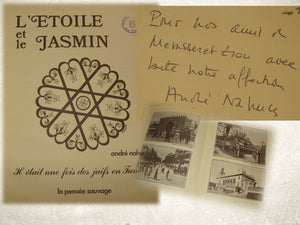 L'ETOILE
et le
JASMIN
andré nah
Il était une fois des juifs en Tun
la pensée sauvage
Pour nos amis de
Mevasseret Zion avec
toute notre affection
André Nahum